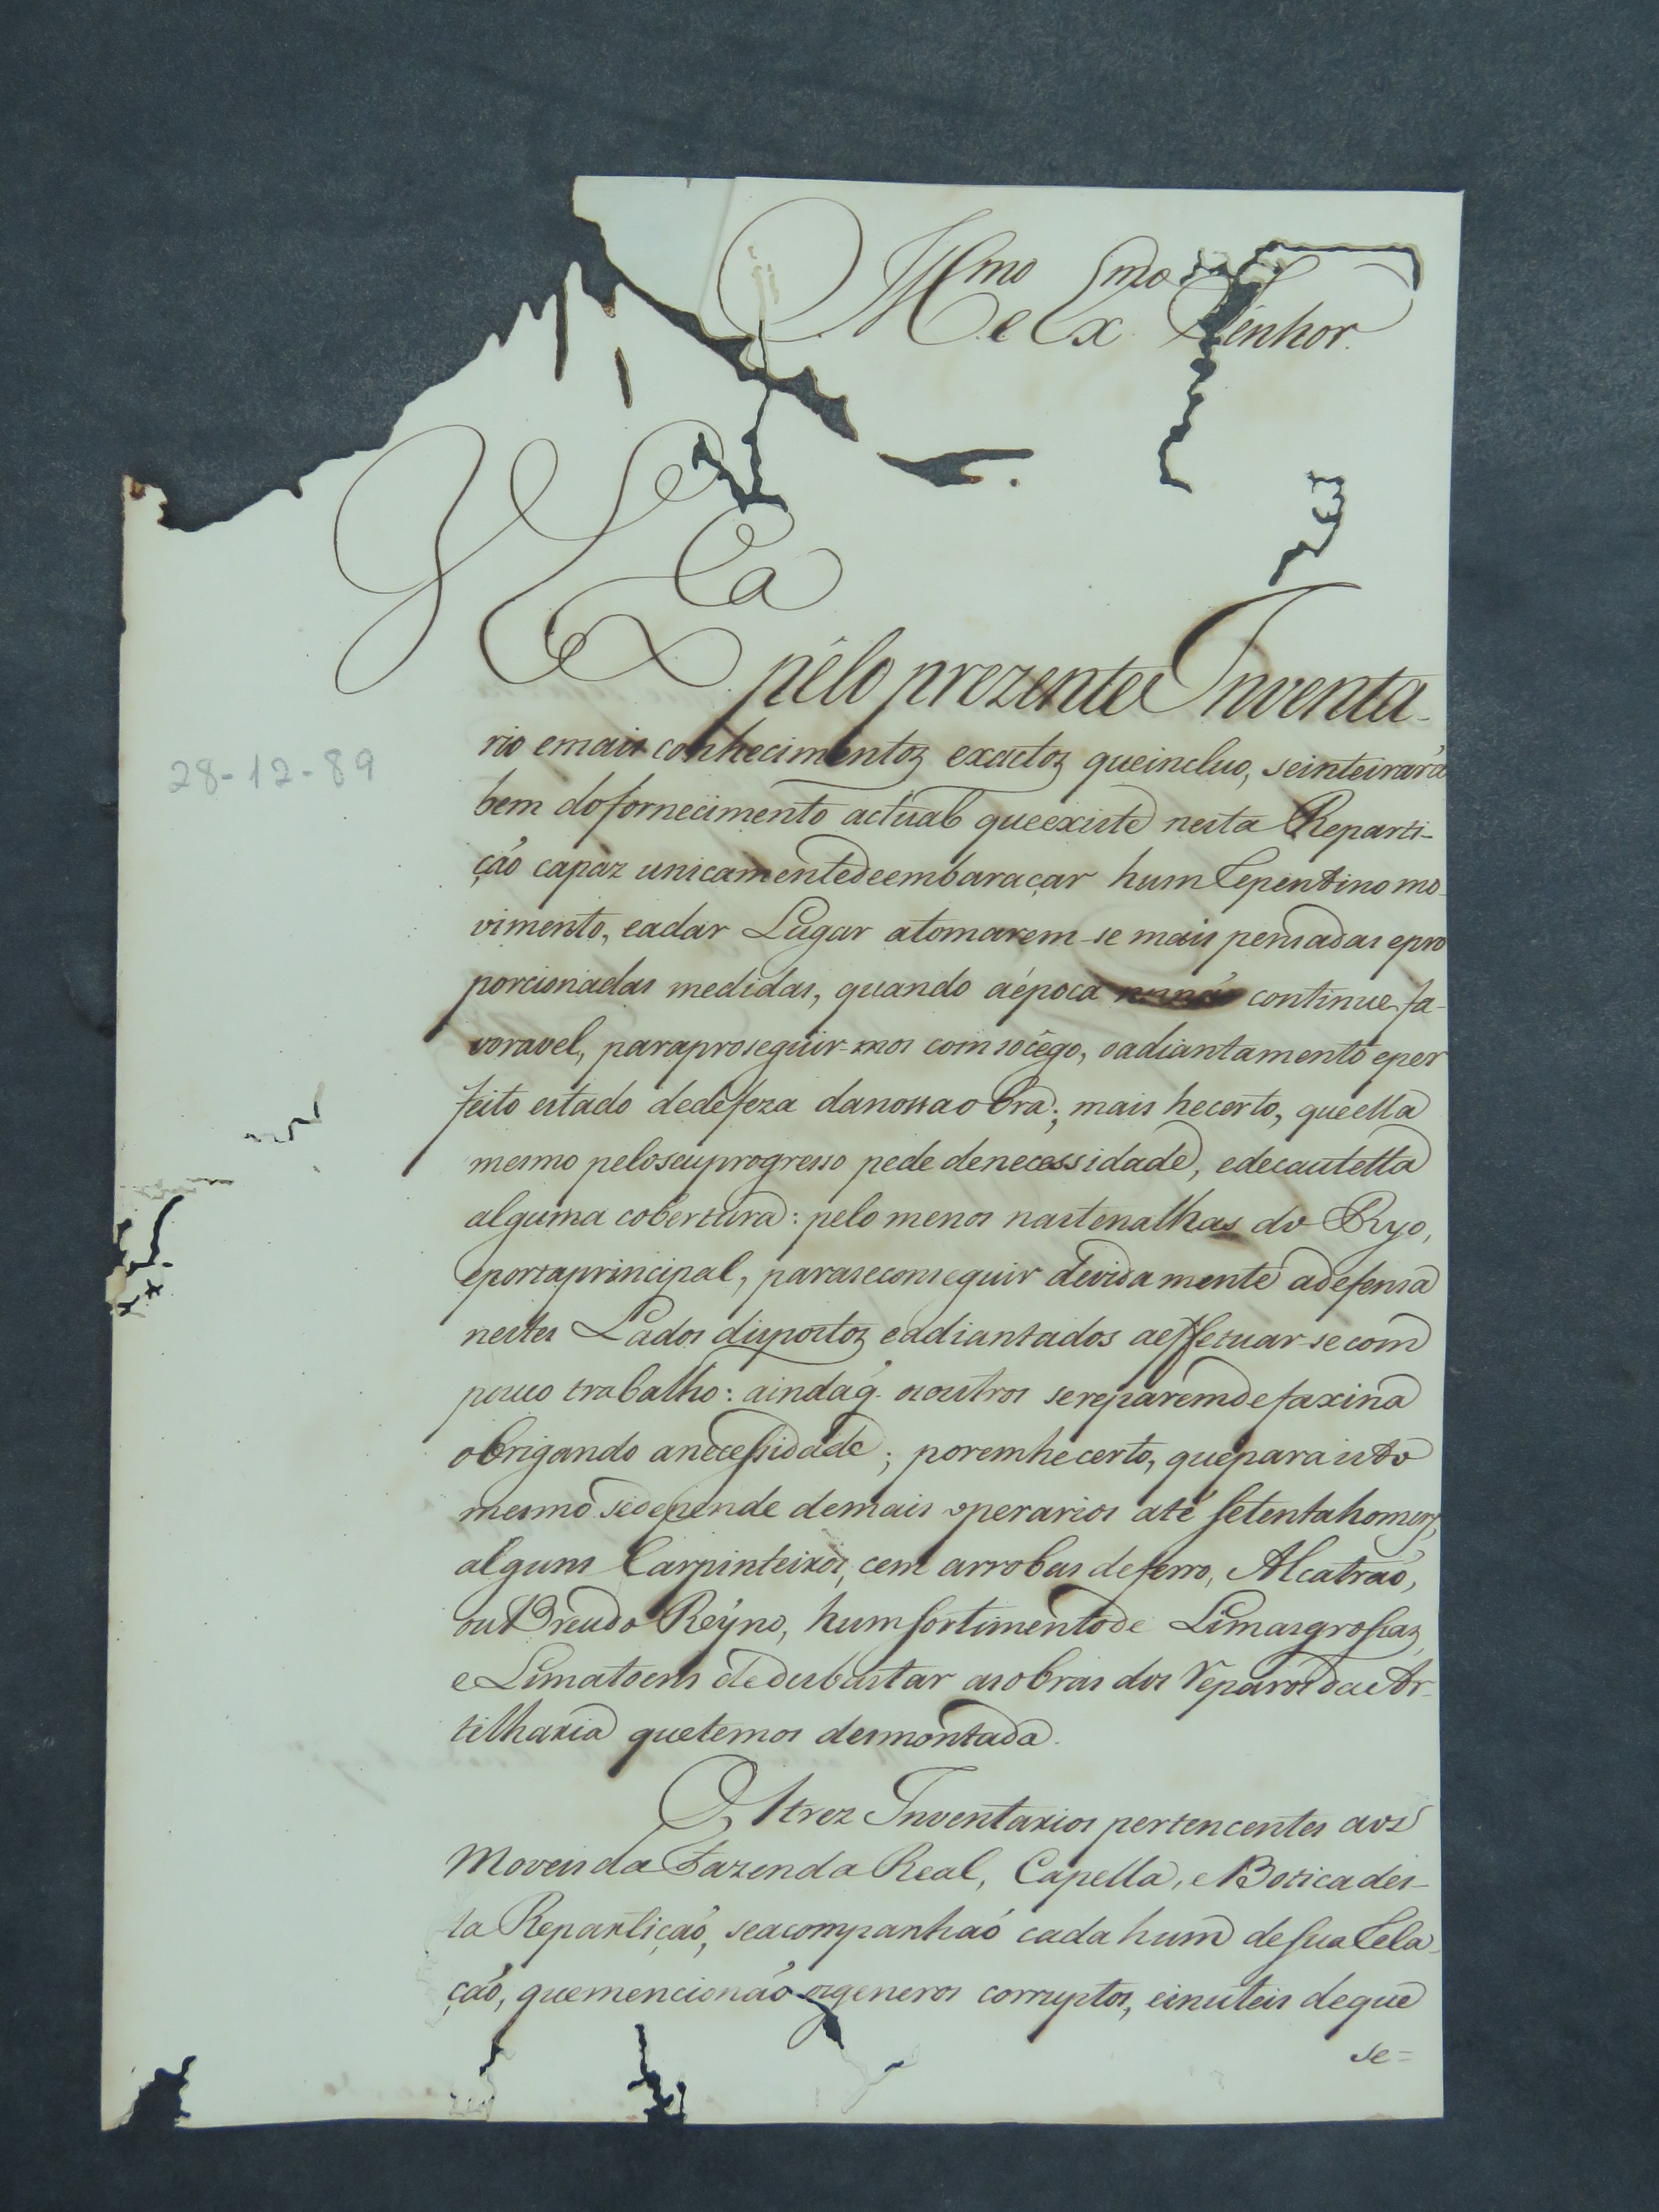 Illmo e Exmo Senhor.
V Exca
pélo prezente Inventa-
rio e mais conhecimentos exactos que incluo, se inteirará
28-12-89
bem do fornecimento actual que existe nesta Reparti-
ção capaz unicamente de embaraçar hum Repentino mo-
vimento, e a dar Lugar a tomarem-se mais pensadas e pro
porcionadas medidas, quando a época não continue fa-
voravel, para proseguir-mos com socêgo, o adiantamento e per
feito estado de defeza da nossa obra; mais he certo, que ella
mesmo pelo seu progresso pede de necessidade, e de cautella
alguma cobertura: pelo menos nas tenalhas do Ryo,
e porta principal, para se conseguir devidamente a defensa
nestes Lados dispostos e adiantados a effetuar-se com
pouco trabalho: ainda q. os outros se reparem de faxina
obrigando a necessidade; porem he certo, que para isto
mesmo se depende de mais operarios até setenta homens,
alguns Carpinteiros, cem arrobas de ferro, Alcatrão,
ou Breu do Reyno, hum sortimento de Limas grossas,
e Limatoens de desbastar as obras dos Reparos da Ar-
tilharia que temos desmontada.
Os trez Inventarios pertencentes aos
Moveis da Fazenda Real, Capella, e Botica des-
ta Repartição, se acompanhão cada hum de sua Rela
ção, que mencionão os generos corruptos, e inuteis de que
se=